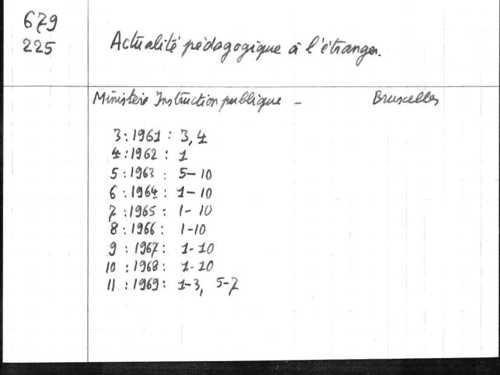 679
225
Actualité pédagogique à l'étranger.
Ministère Instruction publique - Bruxelles
3 : 1961 : 3, 4
4 : 1962 : 1
5 : 1963 : 5-10
6 : 1964 : 1-10
7 : 1965 : 1-10
8 : 1966 : 1-10
9 : 1967 : 1-10
10 : 1968 : 1-10
11 : 1969 : 1-3, 5-7